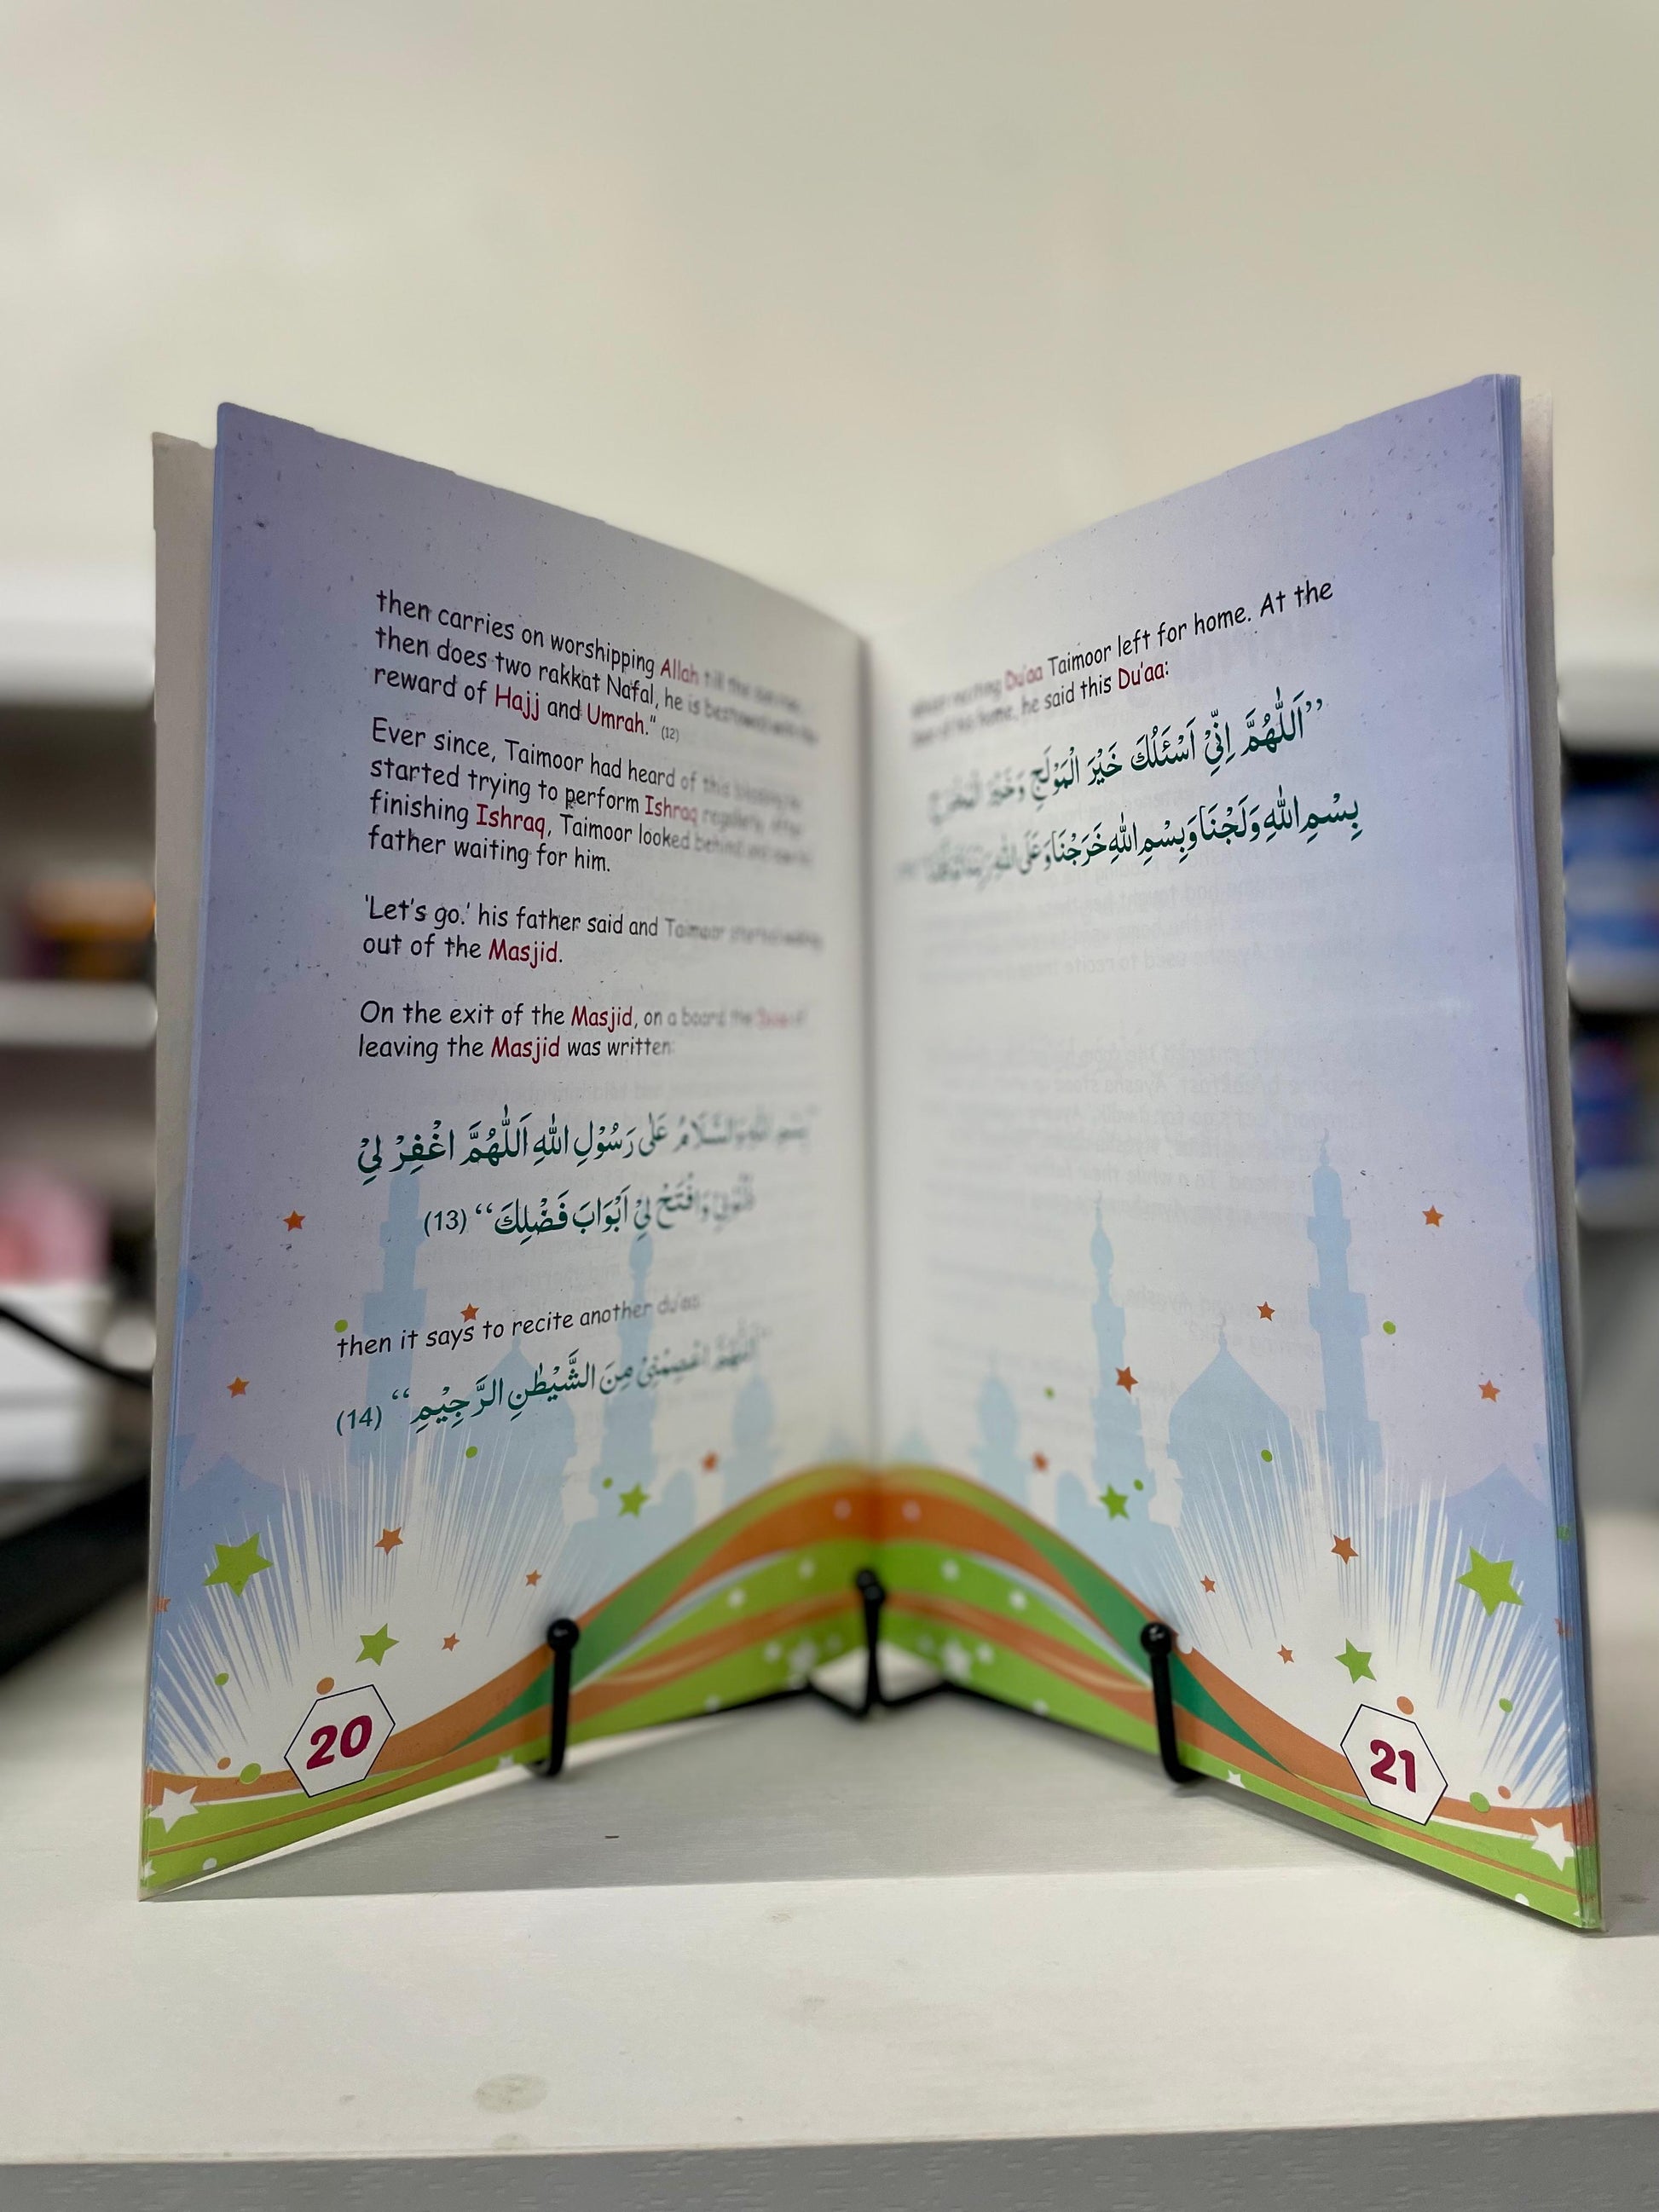 then carries on worshipping Allah till the sun rises,
then does two rakkat Nafal, he is bestowed with the
reward of Hajj and Umrah." (12)
Ever since, Taimoor had heard of this blessing he
started trying to perform Ishraq regularly. After
finishing Ishraq, Taimoor looked behind and saw his
father waiting for him.
'Let's go.' his father said and Taimoor started walking
out of the Masjid.
On the exit of the Masjid, on a board the Du'aa of
leaving the Masjid was written:
بِسْمِ اللهِ وَالسَّلَامُ عَلٰى رَسُوْلِ اللهِ اَللّٰهُمَّ اغْفِرْ لِيْ
ذُنُوْبِيْ وَافْتَحْ لِيْ اَبْوَابَ فَضْلِكَ‘‘ (13)
then it says to recite another du'aa:
’’اَللّٰهُمَّ اعْصِمْنِيْ مِنَ الشَّيْطٰنِ الرَّجِيْمِ‘‘ (14)
20
reciting Du'aa Taimoor left for home. At the
of his home, he said this Du'aa:
’’اَللّٰهُمَّ اِنِّيْ اَسْئَلُكَ خَيْرَ الْمَوْلَجِ وَخَيْرَ الْمَخْرَجِ
بِسْمِ اللهِ وَلَجْنَا وَبِسْمِ اللهِ خَرَجْنَا وَعَلَى اللهِ رَبِّنَا تَوَكَّلْنَا
21